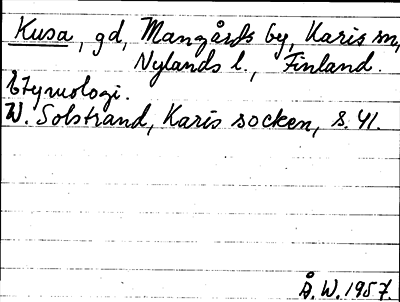 Kusa, gd, Mangårds by, Karis sn,
Nylands l., Finland.
Etymologi.
W. Solstrand, Karis socken, s. 41.
Å. W. 1957.